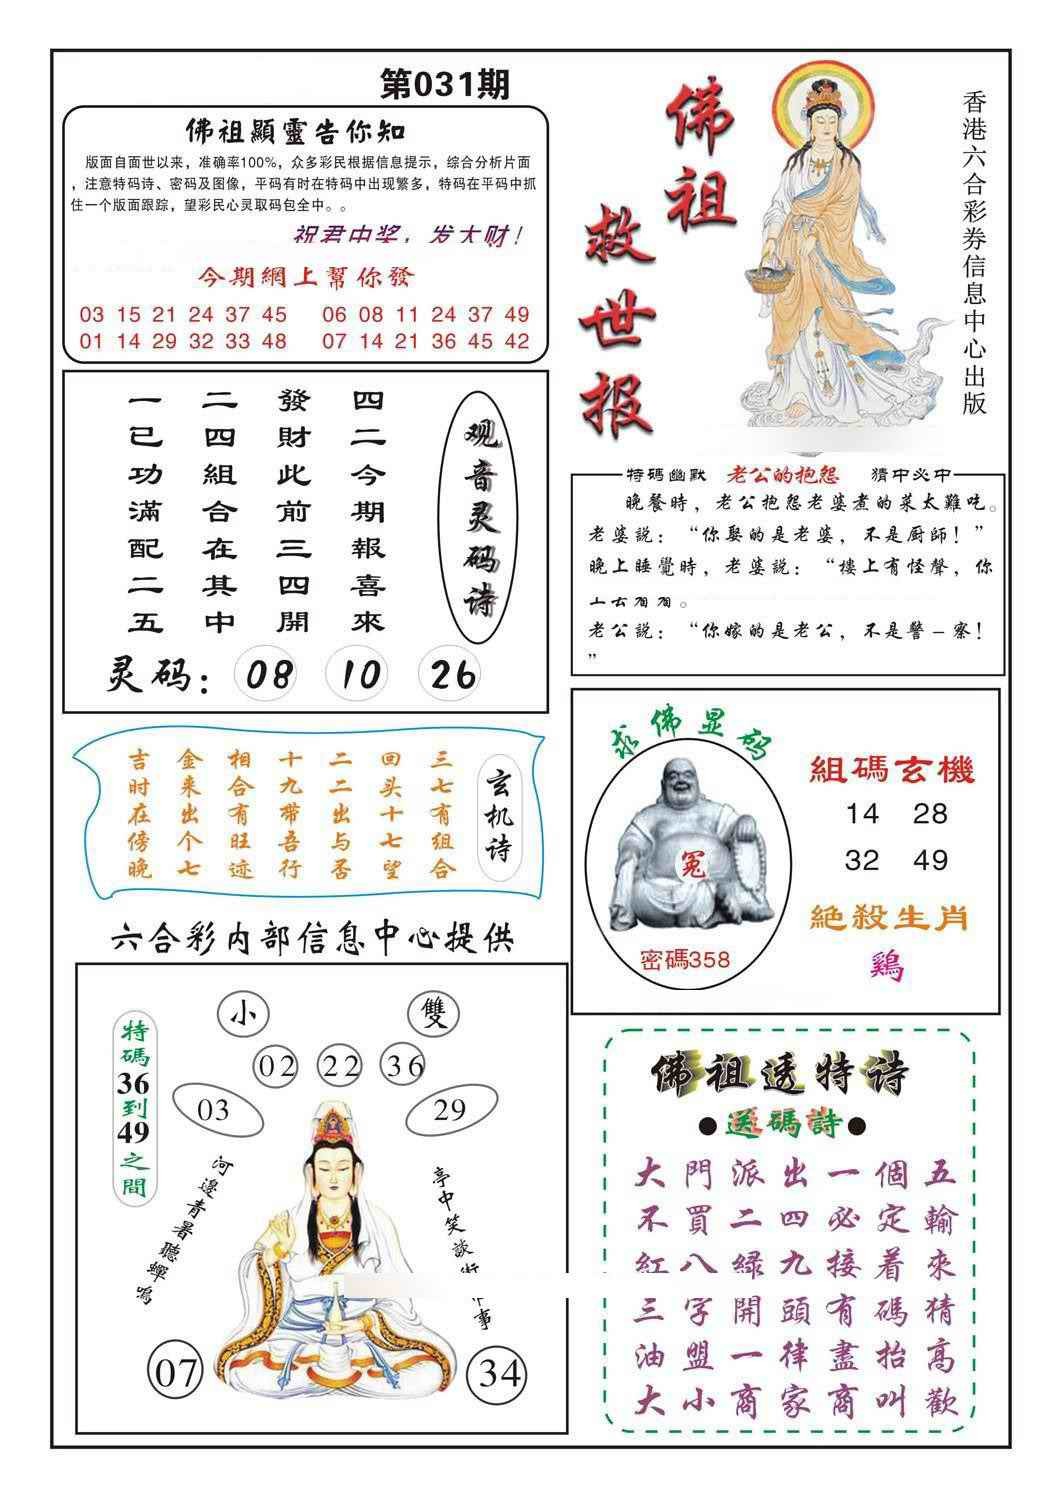 第031期
佛祖顯靈告你知
版面自面世以来，准确率100%，众多彩民根据信息提示，综合分析片面
，注意特码诗、密码及图像，平码有时在特码中出现繁多，特码在平码中抓
住一个版面跟踪，望彩民心灵取码包全中。。
祝君中奖，发大财！
今期網上幫你發
03 15 21 24 37 45 06 08 11 24 37 49
01 14 29 32 33 48 07 14 21 36 45 42
佛祖
救世报
香港六合彩券信息中心出版
观音灵码诗
四二今期報喜來
發財此前三四開
二四組合在其中
一已功滿配二五
灵码：08 10 26
特碼幽默 老公的抱怨 猜中必中
晚餐時，老公抱怨老婆煮的菜太難吃。
老婆説：“你娶的是老婆，不是厨師！”
晚上睡覺時，老婆説：“樓上有怪聲，你
老公説：“你嫁的是老公，不是警－察！
”
玄机诗
三七有组合
回头十七望
二二出与否
十九带吾行
相合有旺迹
金来出个七
吉时在傍晚
求佛显码
冤
密碼358
組碼玄機
14 28
32 49
絶殺生肖
鷄
六合彩内部信息中心提供
特碼36到49之間
小 雙
02 22 36
03 29
河邊青暑聽蟬鳴
亭中笑談
事
07 34
佛祖透特诗
●送碼詩●
大門派出一個五
不買二四必定輸
紅八緑九接着來
三字開頭有碼猜
油盟一律盡抬高
大小商家商叫歡